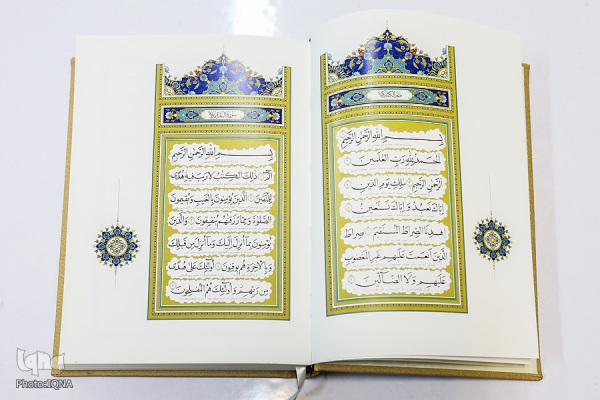 بِسْمِ اللهِ الرَّحْمٰنِ الرَّحِيمِ
اَلْحَمْدُ لِلّٰهِ رَبِّ الْعٰلَمِينَ
الرَّحْمٰنِ الرَّحِيمِ مٰلِكِ يَوْمِ الدِّينِ
اِيَّاكَ نَعْبُدُ وَاِيَّاكَ نَسْتَعِينُ
اِهْدِنَا الصِّرَاطَ الْمُسْتَقِيمَ صِرَاطَ
الَّذِينَ اَنْعَمْتَ عَلَيْهِمْ غَيْرِ الْمَغْضُوبِ
عَلَيْهِمْ وَلَا الضَّآلِّينَ
بِسْمِ اللهِ الرَّحْمٰنِ الرَّحِيمِ
الٓمٓ ذٰلِكَ الْكِتٰبُ لَا رَيْبَ فِيهِ هُدًى
لِلْمُتَّقِينَ الَّذِينَ يُؤْمِنُونَ بِالْغَيْبِ وَيُقِيمُونَ
الصَّلٰوةَ وَمِمَّا رَزَقْنٰهُمْ يُنْفِقُونَ وَالَّذِينَ
يُؤْمِنُونَ بِمَآ اُنْزِلَ اِلَيْكَ وَمَآ اُنْزِلَ مِنْ قَبْلِكَ
وَبِالْاٰخِرَةِ هُمْ يُوقِنُونَ اُولٰٓئِكَ عَلٰى هُدًى
مِنْ رَبِّهِمْ وَاُولٰٓئِكَ هُمُ الْمُفْلِحُونَ
iqna
Photo:IQNA